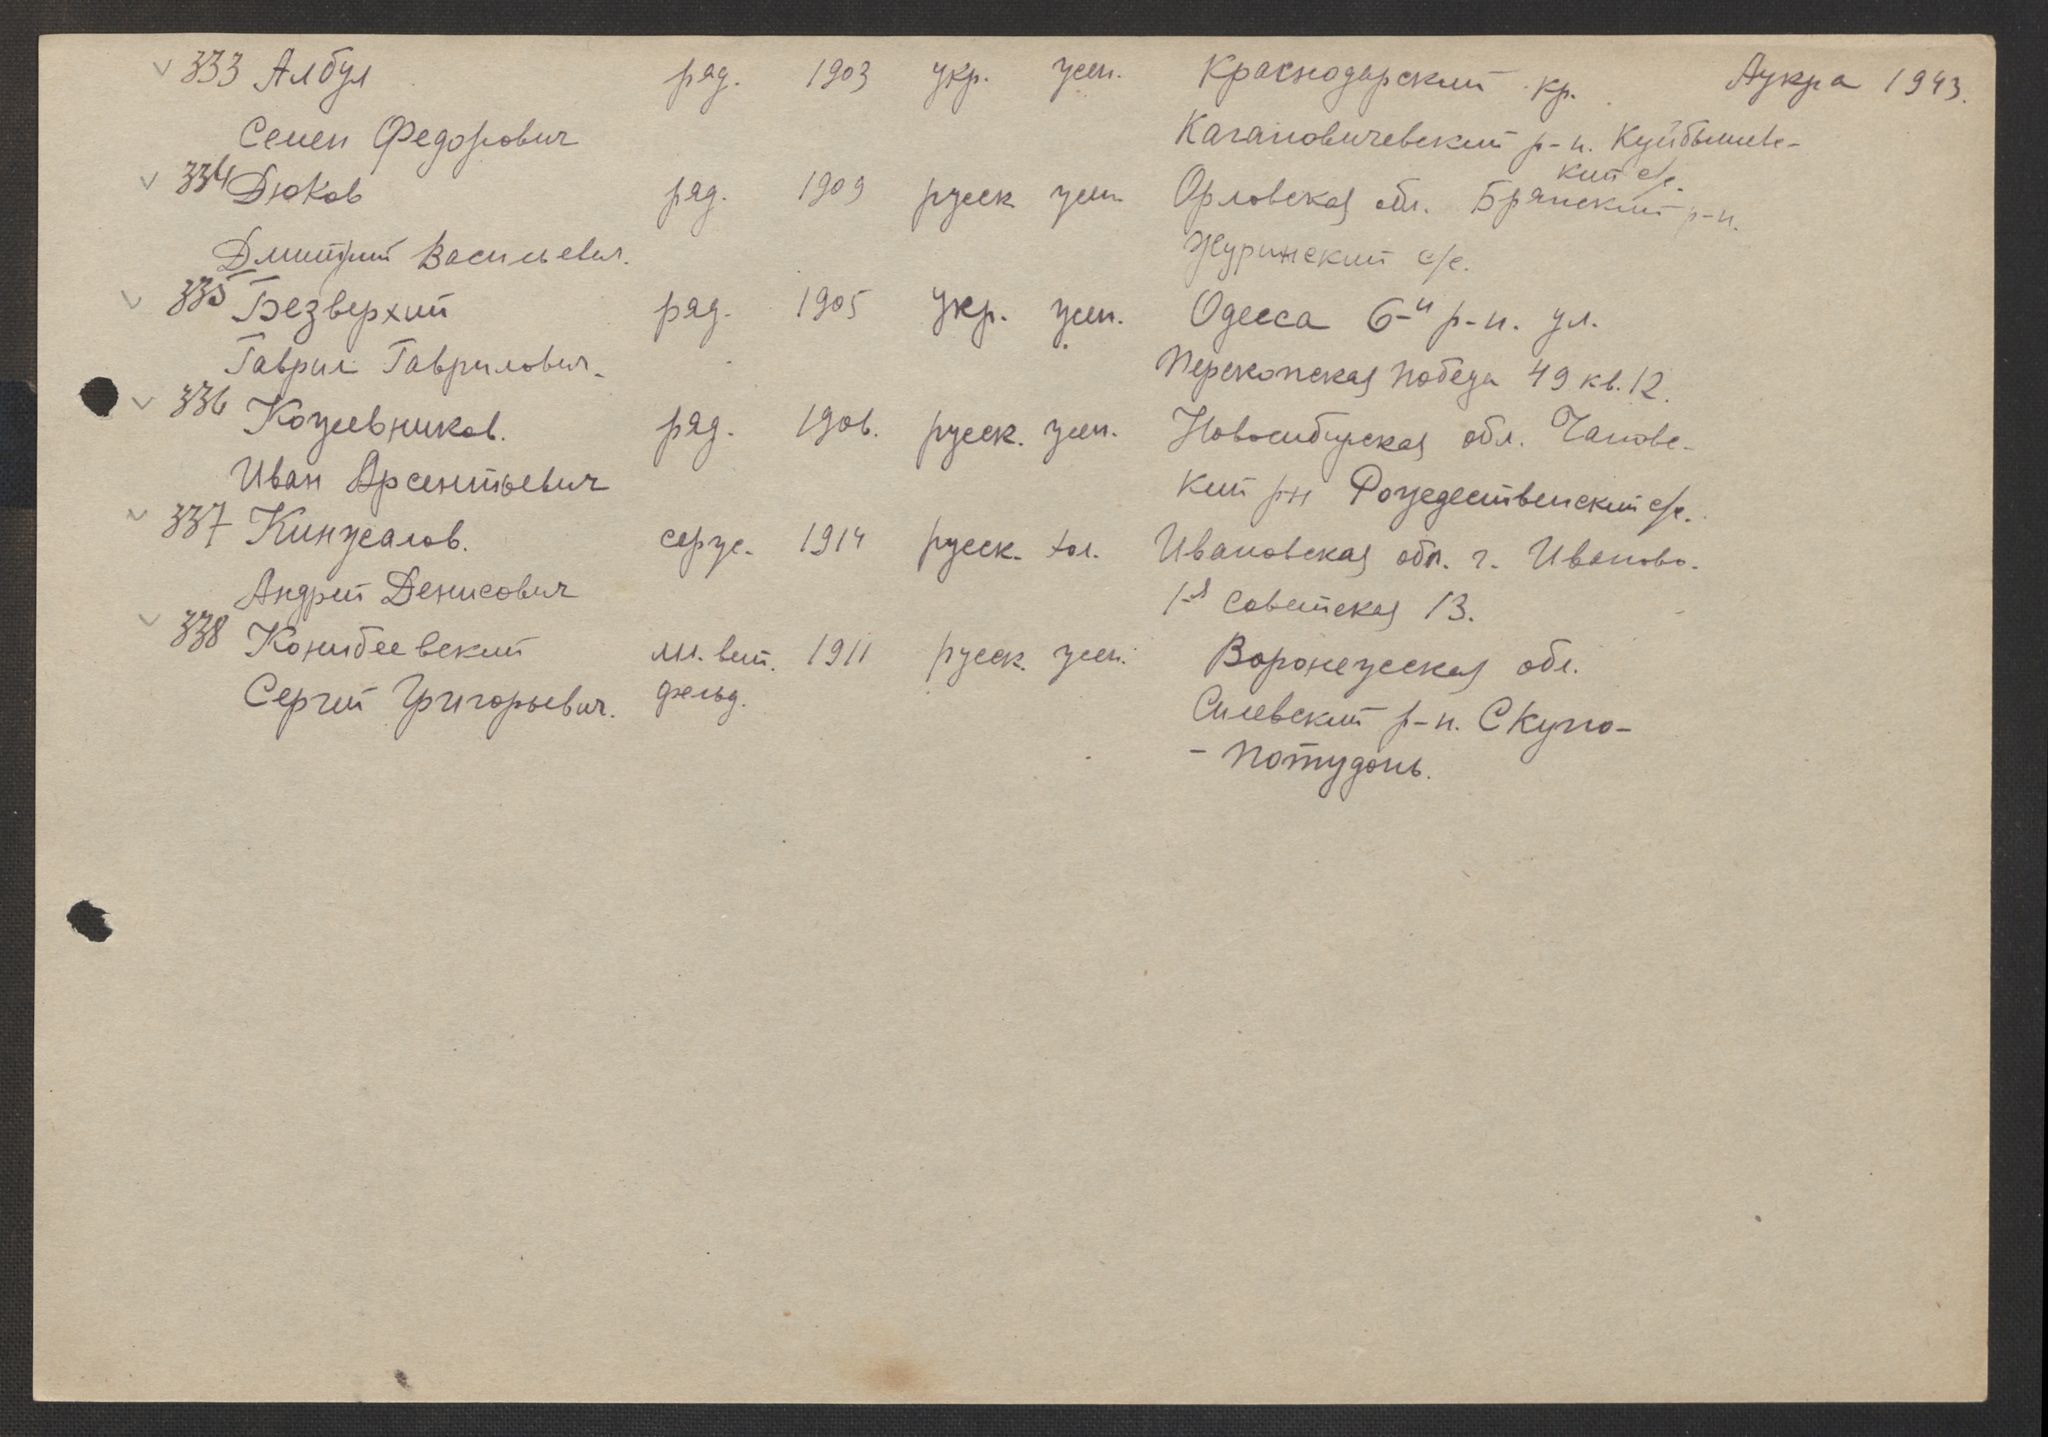 333 Албул ряд. 1903 укр. жен. Краснодарский кр. Аукра 1943.
Семен Федорович Кагановичевский р-н. Куйбышевс-
кий с/с.
334 Дюков ряд. 1909 русск жен. Орловская обл. Брянский р-н.
Дмитрий Васильевич. Журинский с/с.
335 Безверхий ряд. 1905 укр. жен. Одесса 6-й р-н. ул.
Гаврил Гаврилович. Перекопская победа 49 кв. 12.
336 Кожевников. ряд. 1906. русск. жен. Новосибирская обл. Чановс-
Иван Арсентьевич кий рн Рождественский с/с.
337 Кинжалов. серж. 1914 русск. хол. Ивановская обл. г. Иваново.
Андрей Денисович 1-я Советская 13.
338 Конибеевский мл. вет. 1911 русск. жен. Воронежская обл.
Сергей Григорьевич. фельд. р-н.
- Потудонь.